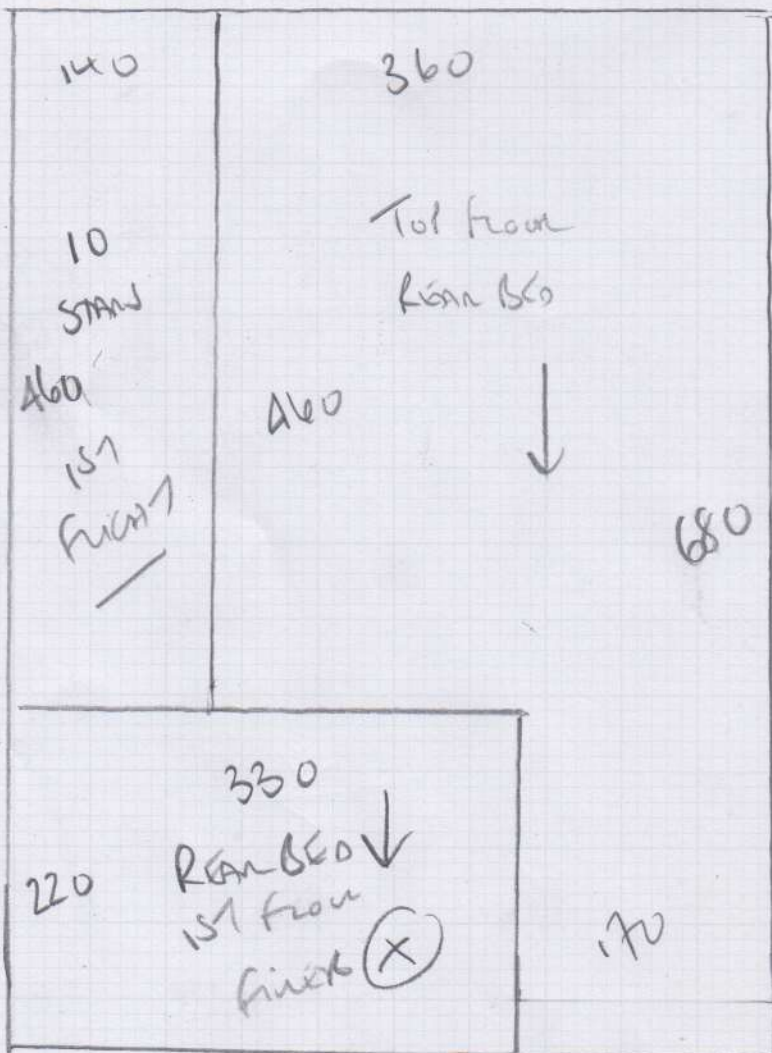 140
10
STAIRS
460
1ST
FLIGHT
360
TOP FLOOR
REAR BED
460
680
330
REAR BED
1ST FLOOR
220
X
170